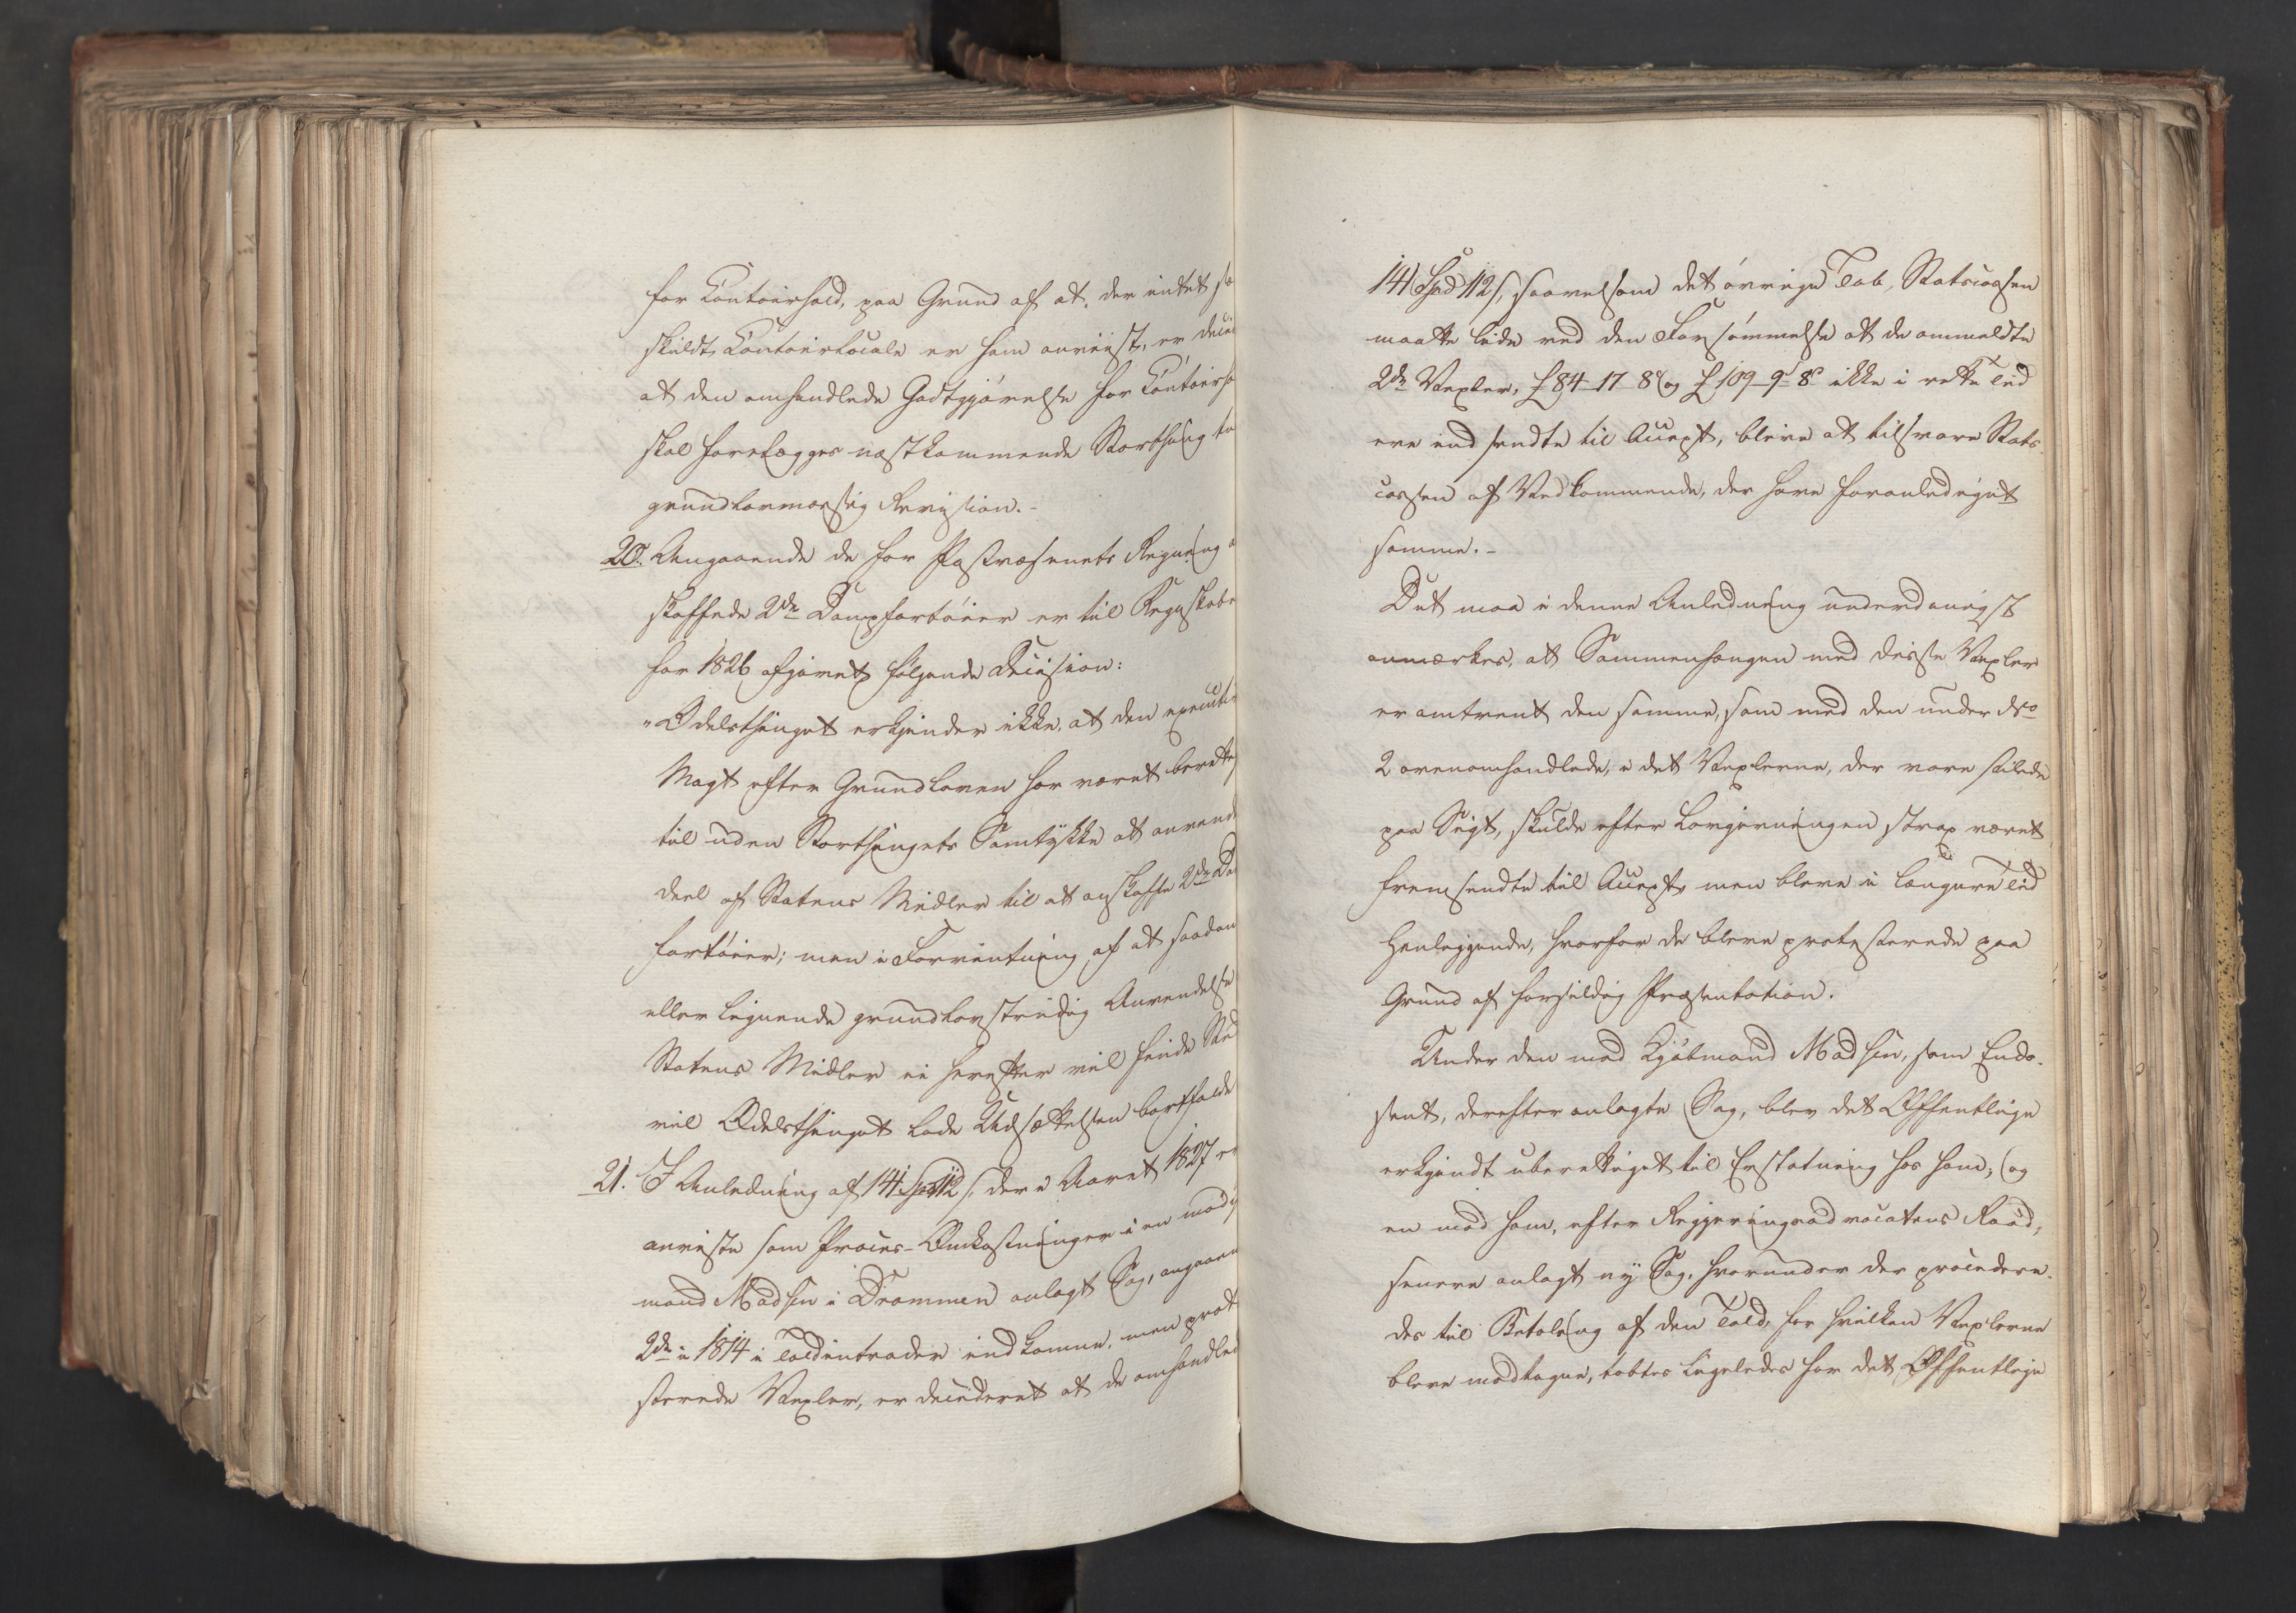 for Contoirhold, paa Grund af at, der intet sæ
skildt Contoirlocale er ham anviist, er deci
at den omhandlede Godtgjørelse for Contoirho
skal forelægges næstkommende Storthing to
grundlovmæssig Revision.-
20. Angaaende de for Postvæsenets Regning a
skaffede 2de Dampfartøier er til Regnskabe
for 1826 afgivet følgende Decision:
"Odelsthinget erkjender ikke, at den executi
Magt efter Grundloven har været berette
til uden Storthingets Samtykke at anvend
deel af Statens Midler til at anskaffe 2de Da
fartøier; men i Forventning af at saadan
eller lignende grundlovstridig Anvendelse
Statens Midler ei herefter vil finde Sted
vil Odelsthinget lade Udsættelsen bortfalde
21. I Anledning af 141 Spd 112 s, der i Aaret 1827 er
anviste som Proces-Omkostninger i en mod
mand Madsen i Drammen anlagt Sag, angaaen
2de i 1814 i Toldintrader indkomne, men prot
sterede Vexler, er decideret at de omhandled
141 Spd 112 s, saavelsom det øvrige Tab, Statscassen
maatte lide ved den Forsømmelse at de ommeldte
2de Vexler, £ 84-17-8 og £ 109-9-8 ikke i rette Tid
ere indsendte til Accept, blive at tilsvare Stats
cassen af Vedkommende, der have foranlediget
samme.-
Det maa i denne Anledning underdanigst
anmærkes, at Sammenhængen med disse Vexler
er omtrent den samme, som med den under No
2 ovenomhandlede, i det Vexlerne, der vare stilede
paa Sigt, skulde efter Lovgivningen strax været
fremsendte til Accept, men bleve i længere Tid
henliggende, hvorfor de bleve protesterede paa
Grund af forsildig Præsentation.
Under den mod Kjøbmand Madsen, som Endo-
sent, derefter anlagte Sag, blev det Offentlige
erkjendt uberettiget til Erstatning hos ham; og
en mod ham, efter Regjeringsadvocatens Raad,
senere anlagt ny Sag, hvorunder der procedere-
des til Betaling af den Told, for hvilken Vexlerne
bleve modtagne, tabtes ligeledes for det Offentlige